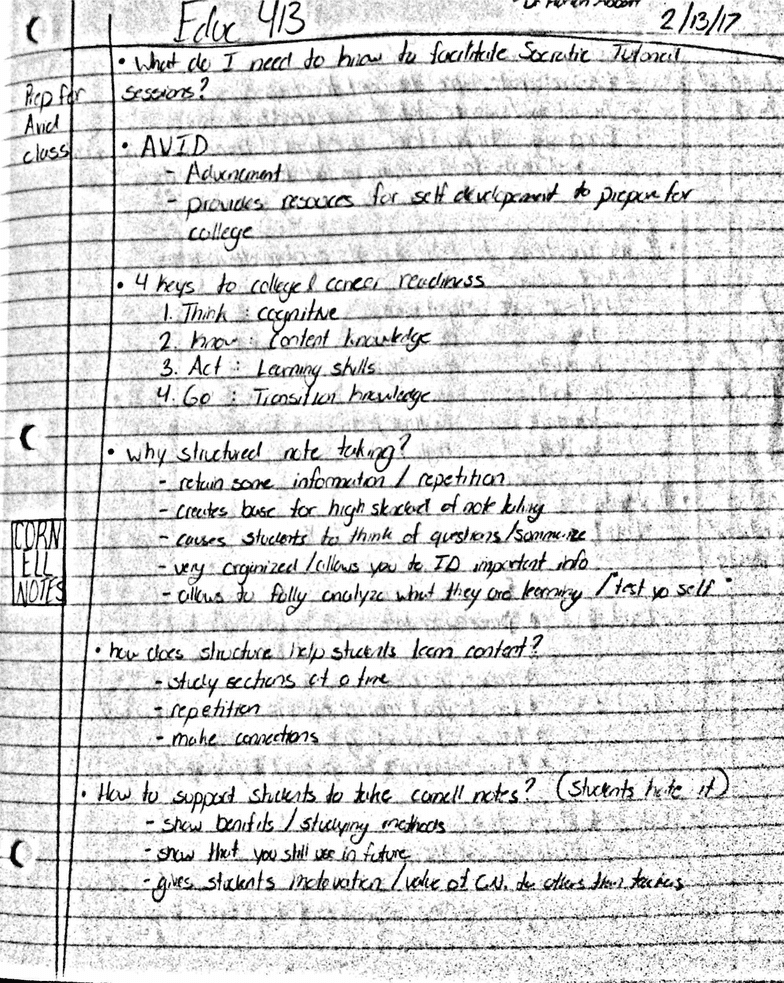 Educ 413
2/13/17
• What do I need to know to facilitate Socratic Tutorial
Prep for
Avid
class
sessions?
• AVID
- Advancement
- provides resources for self development to prepare for
college
• 4 keys to college & career readiness
1. Think : cognitive
2. Know : Content knowledge
3. Act : Learning skills
4. Go : Transition knowledge
• why structured note taking?
- retain some information / repetition
- creates base for high standard of note taking
- causes students to think of questions / summarize
CORN
ELL
NOTES
- very organized / allows you to ID important info
- allows to fully analyze what they are learning / "test yo self"
• how does structure help students learn content?
- study sections at a time
- repetition
- make connections
• How to support students to take cornell notes? (students hate it)
- show benifits / studying methods
- show that you still use in future
- gives students motovation / value of C.N. to others than teachers